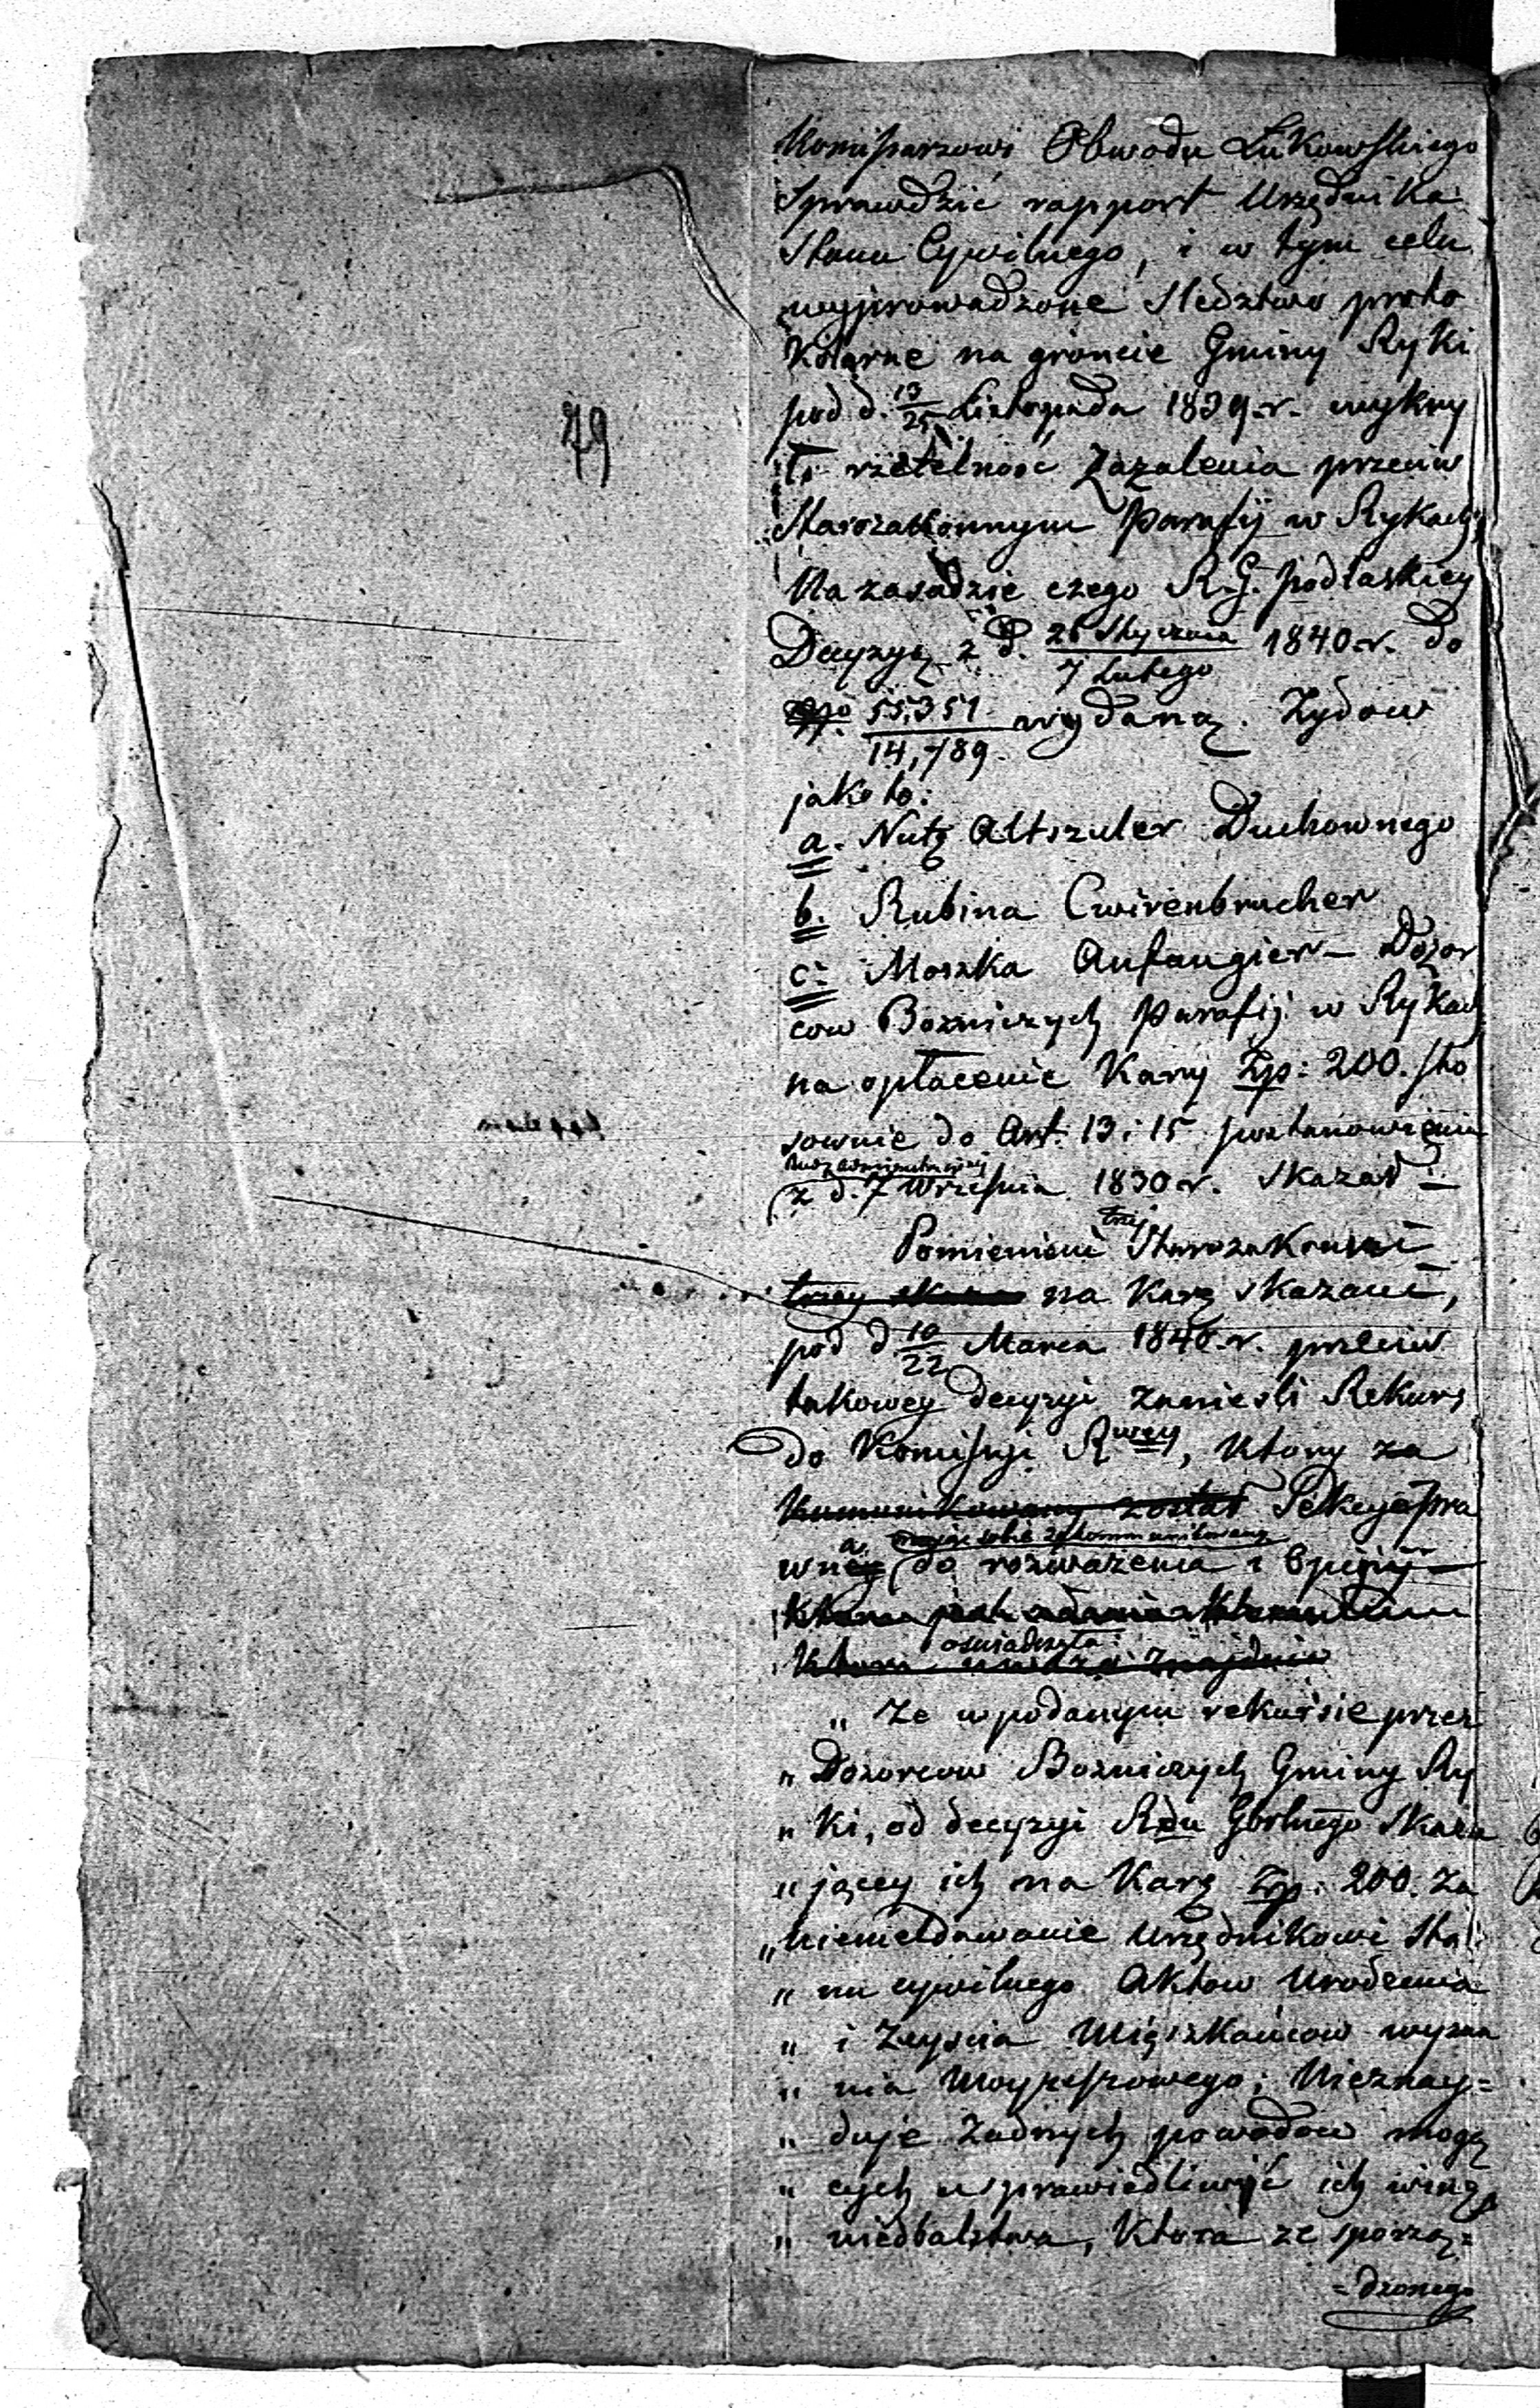 79
Komissarzowi Obwodu Łukowskiego
Sprawdzić rapport Urzędnika
Stanu Cywilnego, i w tym celu
wyprowadzone śledztwo proto
kólarne na gróncie Gminy Ryki
pod d. 13/25 Listopada 1839. r. wykry
ło rzetelność Zażalenia przeciw
Starozakonnym Parafij w Rykach;
Na zasadzie czego R. G. podlaskiey
Decyzyą z d. 26 Stycznia/7 Lutego 1840. r. do
55,351/14,789. wydaną. Żydow
jako to:
a. Nutę Altszuler Duchownego
b. Rubina Cwirenbrucher
c: Moszka Anfangier – Dozor
cow Bożniczych Parafij w Rykach
na opłacenie Kary Złp: 200. sto
sownie do Art: 13 i 15 postanowienia
Rady Administracyjnej
z d. 7 Września 1830 r. Skazał –
trzej
Pomienieni Starozakonni
na Karę skazani,
pod d 10/22 Marca 1840. r. przeciw
takowey decyzyi zanieśli Rekurs
do Komissyi Rwey, Ktory za
Kumunikowany został Sekcya Pra
mając sobie zakommunikowany
wna do rozważenia i Opinij
oświadczyła:
„ Że w podanym rekursie przez
„ Dozorcow Bożniczych Gminy Ry
„ ki, od decyzyi Rdu Gbrlnego Skazu
„ jącey ich na Karę Złp: 200. za
„ niemeldowanie Urzędnikowi Sta
„ nu cywilnego Aktow Urodzenia
„ i Zeyścia Mięszkańcow wyzna
„ nia Moyżeszowego; Nieznay=
„ duje żadnych powodow mogą
„ cych usprawiedliwić ich winę
„ niedbalstwa, Ktora ze sporzą=
=dzonego